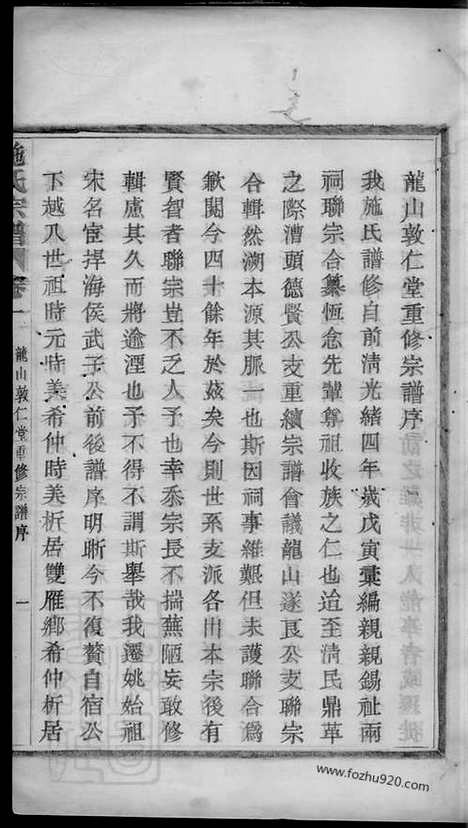 龍山敦仁堂重修宗譜序
我施氏譜修自前清光緒四年歲戊寅彙編親親錫祉兩
祠聯宗合纂恆念先輩尊祖收族之仁也迨至清民鼎革
之際漕頭德賢公支重續宗譜會議龍山遂良公支聯宗
合輯然溯本源其脈一也斯因祠事維艱但未護聯合爲
歉閱今四十餘年於茲矣今則世系支派各出本宗後有
賢智者聯宗豈不乏人予也幸忝宗長不揣蕪陋妄敢修
輯慮其久而將逾湮也予不得不謂斯舉哉我遷姚始祖
宋名宦捍海侯武子公前後譜序明晰今不復贅自宿公
下越八世祖時元時美希仲時美析居雙雁鄉希仲析居
施氏宗譜 卷一 龍山敦仁堂重修宗譜序 一
www.fozhu920.com